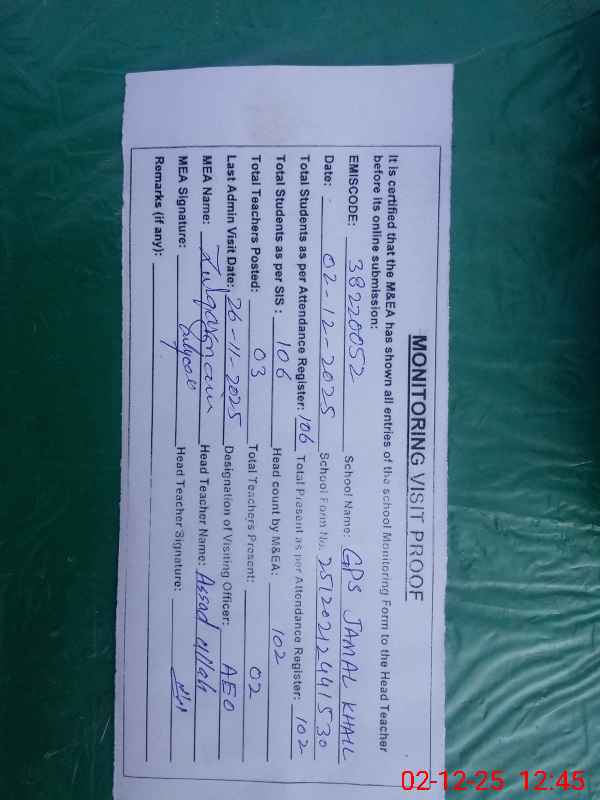 MONITORING VISIT PROOF
It is certified that the M&EA has shown all entries of the school Monitoring Form to the Head Teacher
before its online submission:
EMISCODE: 38220052 School Name: GPS JAMAL KHAIL
Date: 02-12-2025 School Form No. 251202124441530
Total Students as per Attendance Register: 106 Total Present as per Attendance Register: 102
Total Students as per SIS: 106 Head count by M&EA: 102
Total Teachers Posted: 03 Total Teachers Present: 02
Last Admin Visit Date: 26-11-2025 Designation of Visiting Officer: AEO
MEA Name: Head Teacher Name: Assad ullah
MEA Signature: Head Teacher Signature:
Remarks (if any):
02-12-25 12:45